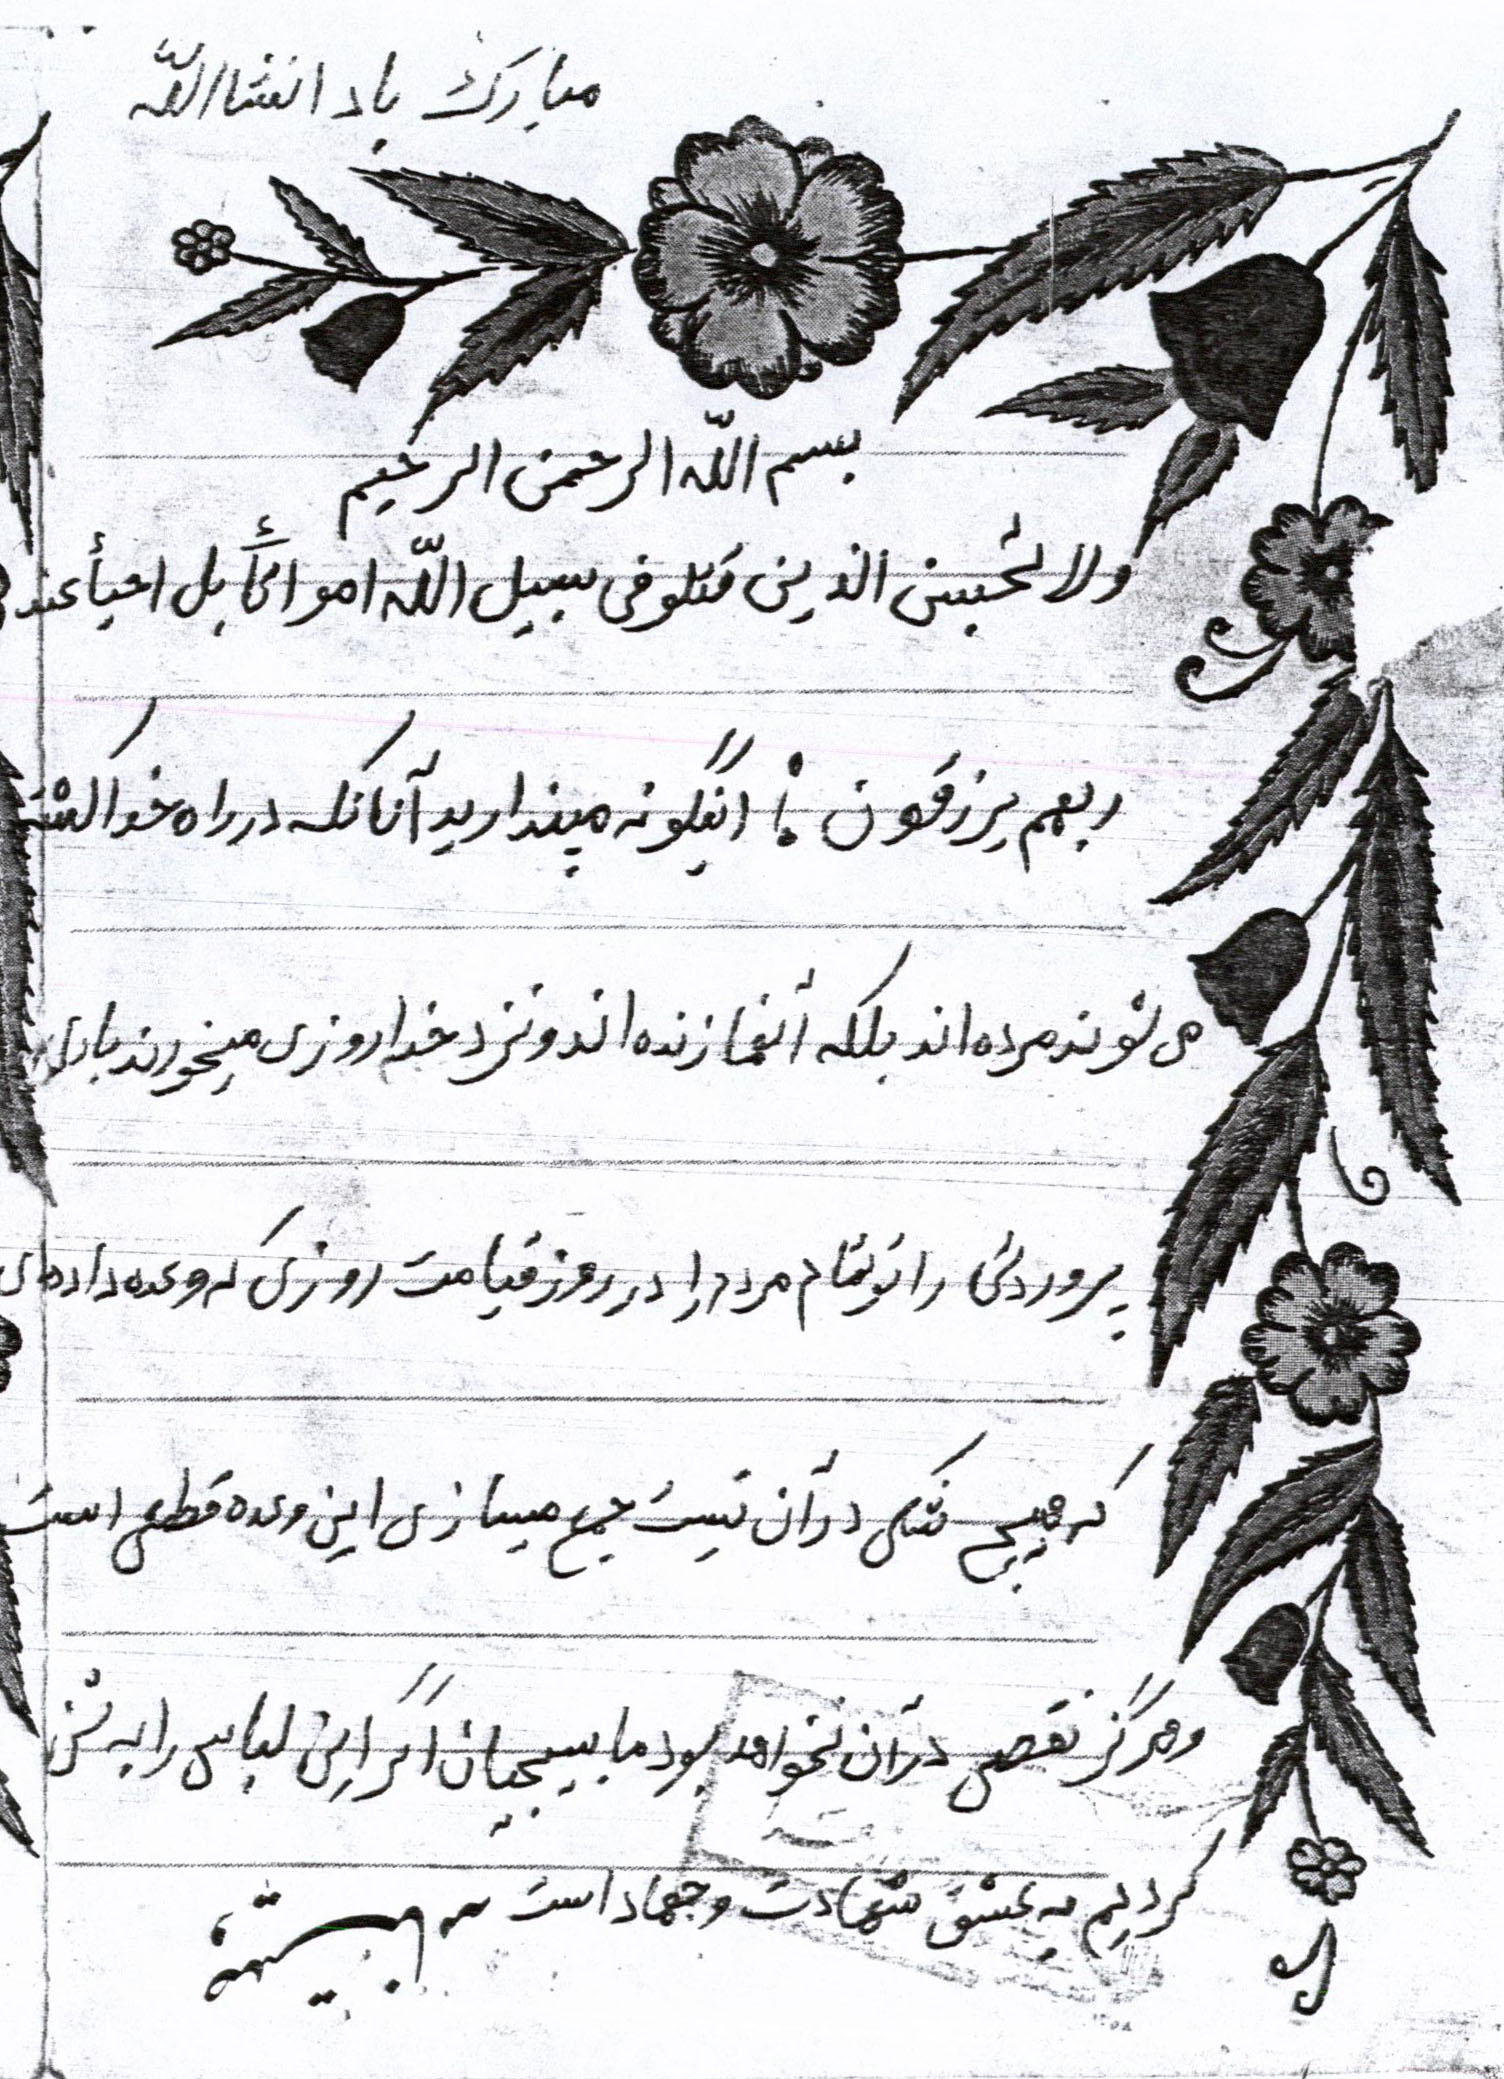 مبارک باد انشاالله
بسم الله الرحمن الرحیم
ولا تحسبن الذین قتلو فی سبیل الله امواتاً بل احیأ عند
ربهم یرزقون اینگونه مپندارید آنانکه در راه خدا کشته
می شوند مرده اند بلکه آنها زنده اند و نزد خدا روزی میخورند بارالها
پروردگارا تو تمام مردم را در روز قیامت روزی که وعده داده ای
که هیچ شکی در آن نیست جمع میسازی این وعده قطعی است
و هرگز نقصی در آن نخواهد بود ما بسیجیان اگر این لباس را به تن
کردیم به عشق شهادت و جهاد است